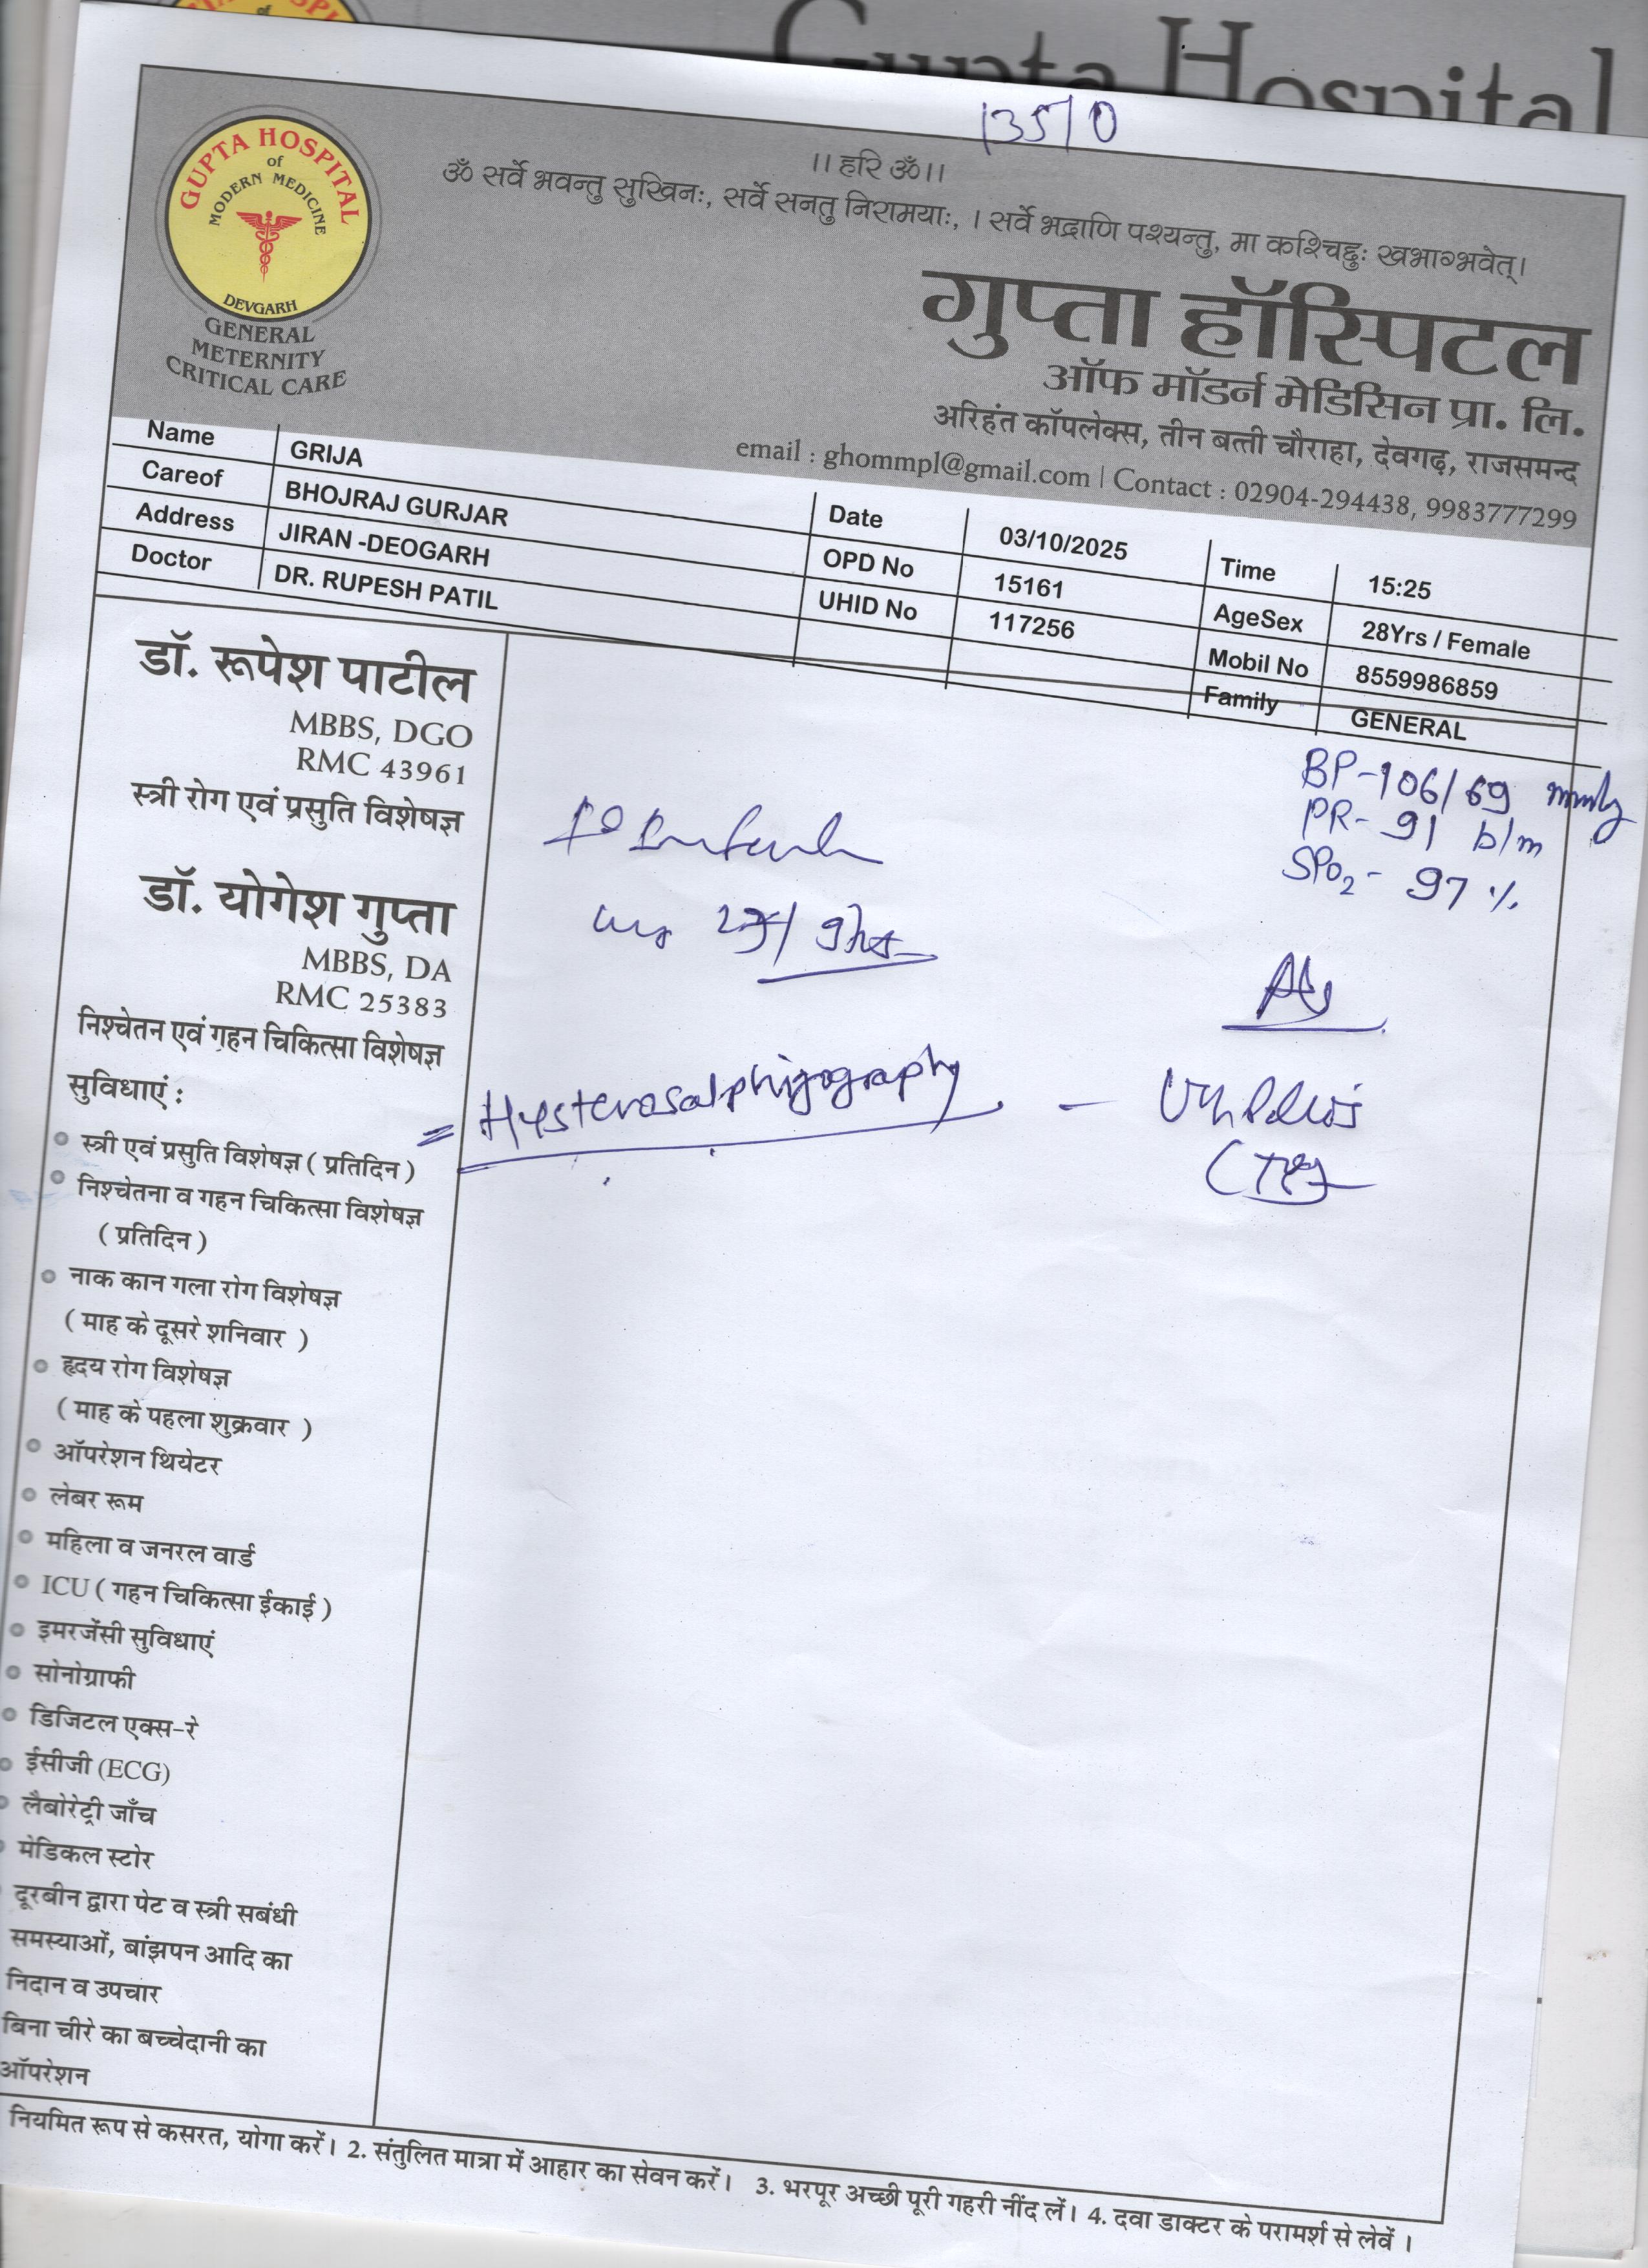 Gupta Hospital
135/0
GUPTA HOSPITAL
of
MODERN MEDICINE
DEVGARH
GENERAL
METERNITY
CRITICAL CARE
।। हरि ॐ।।
ॐ सर्वे भवन्तु सुखिनः, सर्वे सनतु निरामयाः, । सर्वे भद्राणि पश्यन्तु, मा कश्चिद्दुः खभाग्भवेत्।
गुप्ता हॉस्पिटल
ऑफ मॉडर्न मेडिसिन प्रा. लि.
अरिहंत कॉपलेक्स, तीन बत्ती चौराहा, देवगढ़, राजसमन्द
email : ghommpl@gmail.com | Contact : 02904-294438, 9983777299
Name GRIJA Date 03/10/2025 Time 15:25
Careof BHOJRAJ GURJAR OPD No 15161 AgeSex 28Yrs / Female
Address JIRAN -DEOGARH UHID No 117256 Mobil No 8559986859
Doctor DR. RUPESH PATIL Family GENERAL
डॉ. रूपेश पाटील
MBBS, DGO
RMC 43961
स्त्री रोग एवं प्रसुति विशेषज्ञ
डॉ. योगेश गुप्ता
MBBS, DA
RMC 25383
निश्चेतन एवं गहन चिकित्सा विशेषज्ञ
सुविधाएं :
स्त्री एवं प्रसुति विशेषज्ञ ( प्रतिदिन )
निश्चेतना व गहन चिकित्सा विशेषज्ञ
( प्रतिदिन )
नाक कान गला रोग विशेषज्ञ
( माह के दूसरे शनिवार )
हृदय रोग विशेषज्ञ
( माह के पहला शुक्रवार )
ऑपरेशन थियेटर
लेबर रूम
महिला व जनरल वार्ड
ICU ( गहन चिकित्सा ईकाई )
इमरजेंसी सुविधाएं
सोनोग्राफी
डिजिटल एक्स-रे
ईसीजी (ECG)
लैबोरेट्री जाँच
मेडिकल स्टोर
दूरबीन द्वारा पेट व स्त्री सबंधी
समस्याओं, बांझपन आदि का
निदान व उपचार
बिना चीरे का बच्चेदानी का
ऑपरेशन
BP-106/69 mmhg
PR- 91 b/m
SPO2 - 97 %
= Hysterosalphigography -
नियमित रूप से कसरत, योगा करें। 2. संतुलित मात्रा में आहार का सेवन करें। 3. भरपूर अच्छी पूरी गहरी नींद लें। 4. दवा डाक्टर के परामर्श से लेवें ।